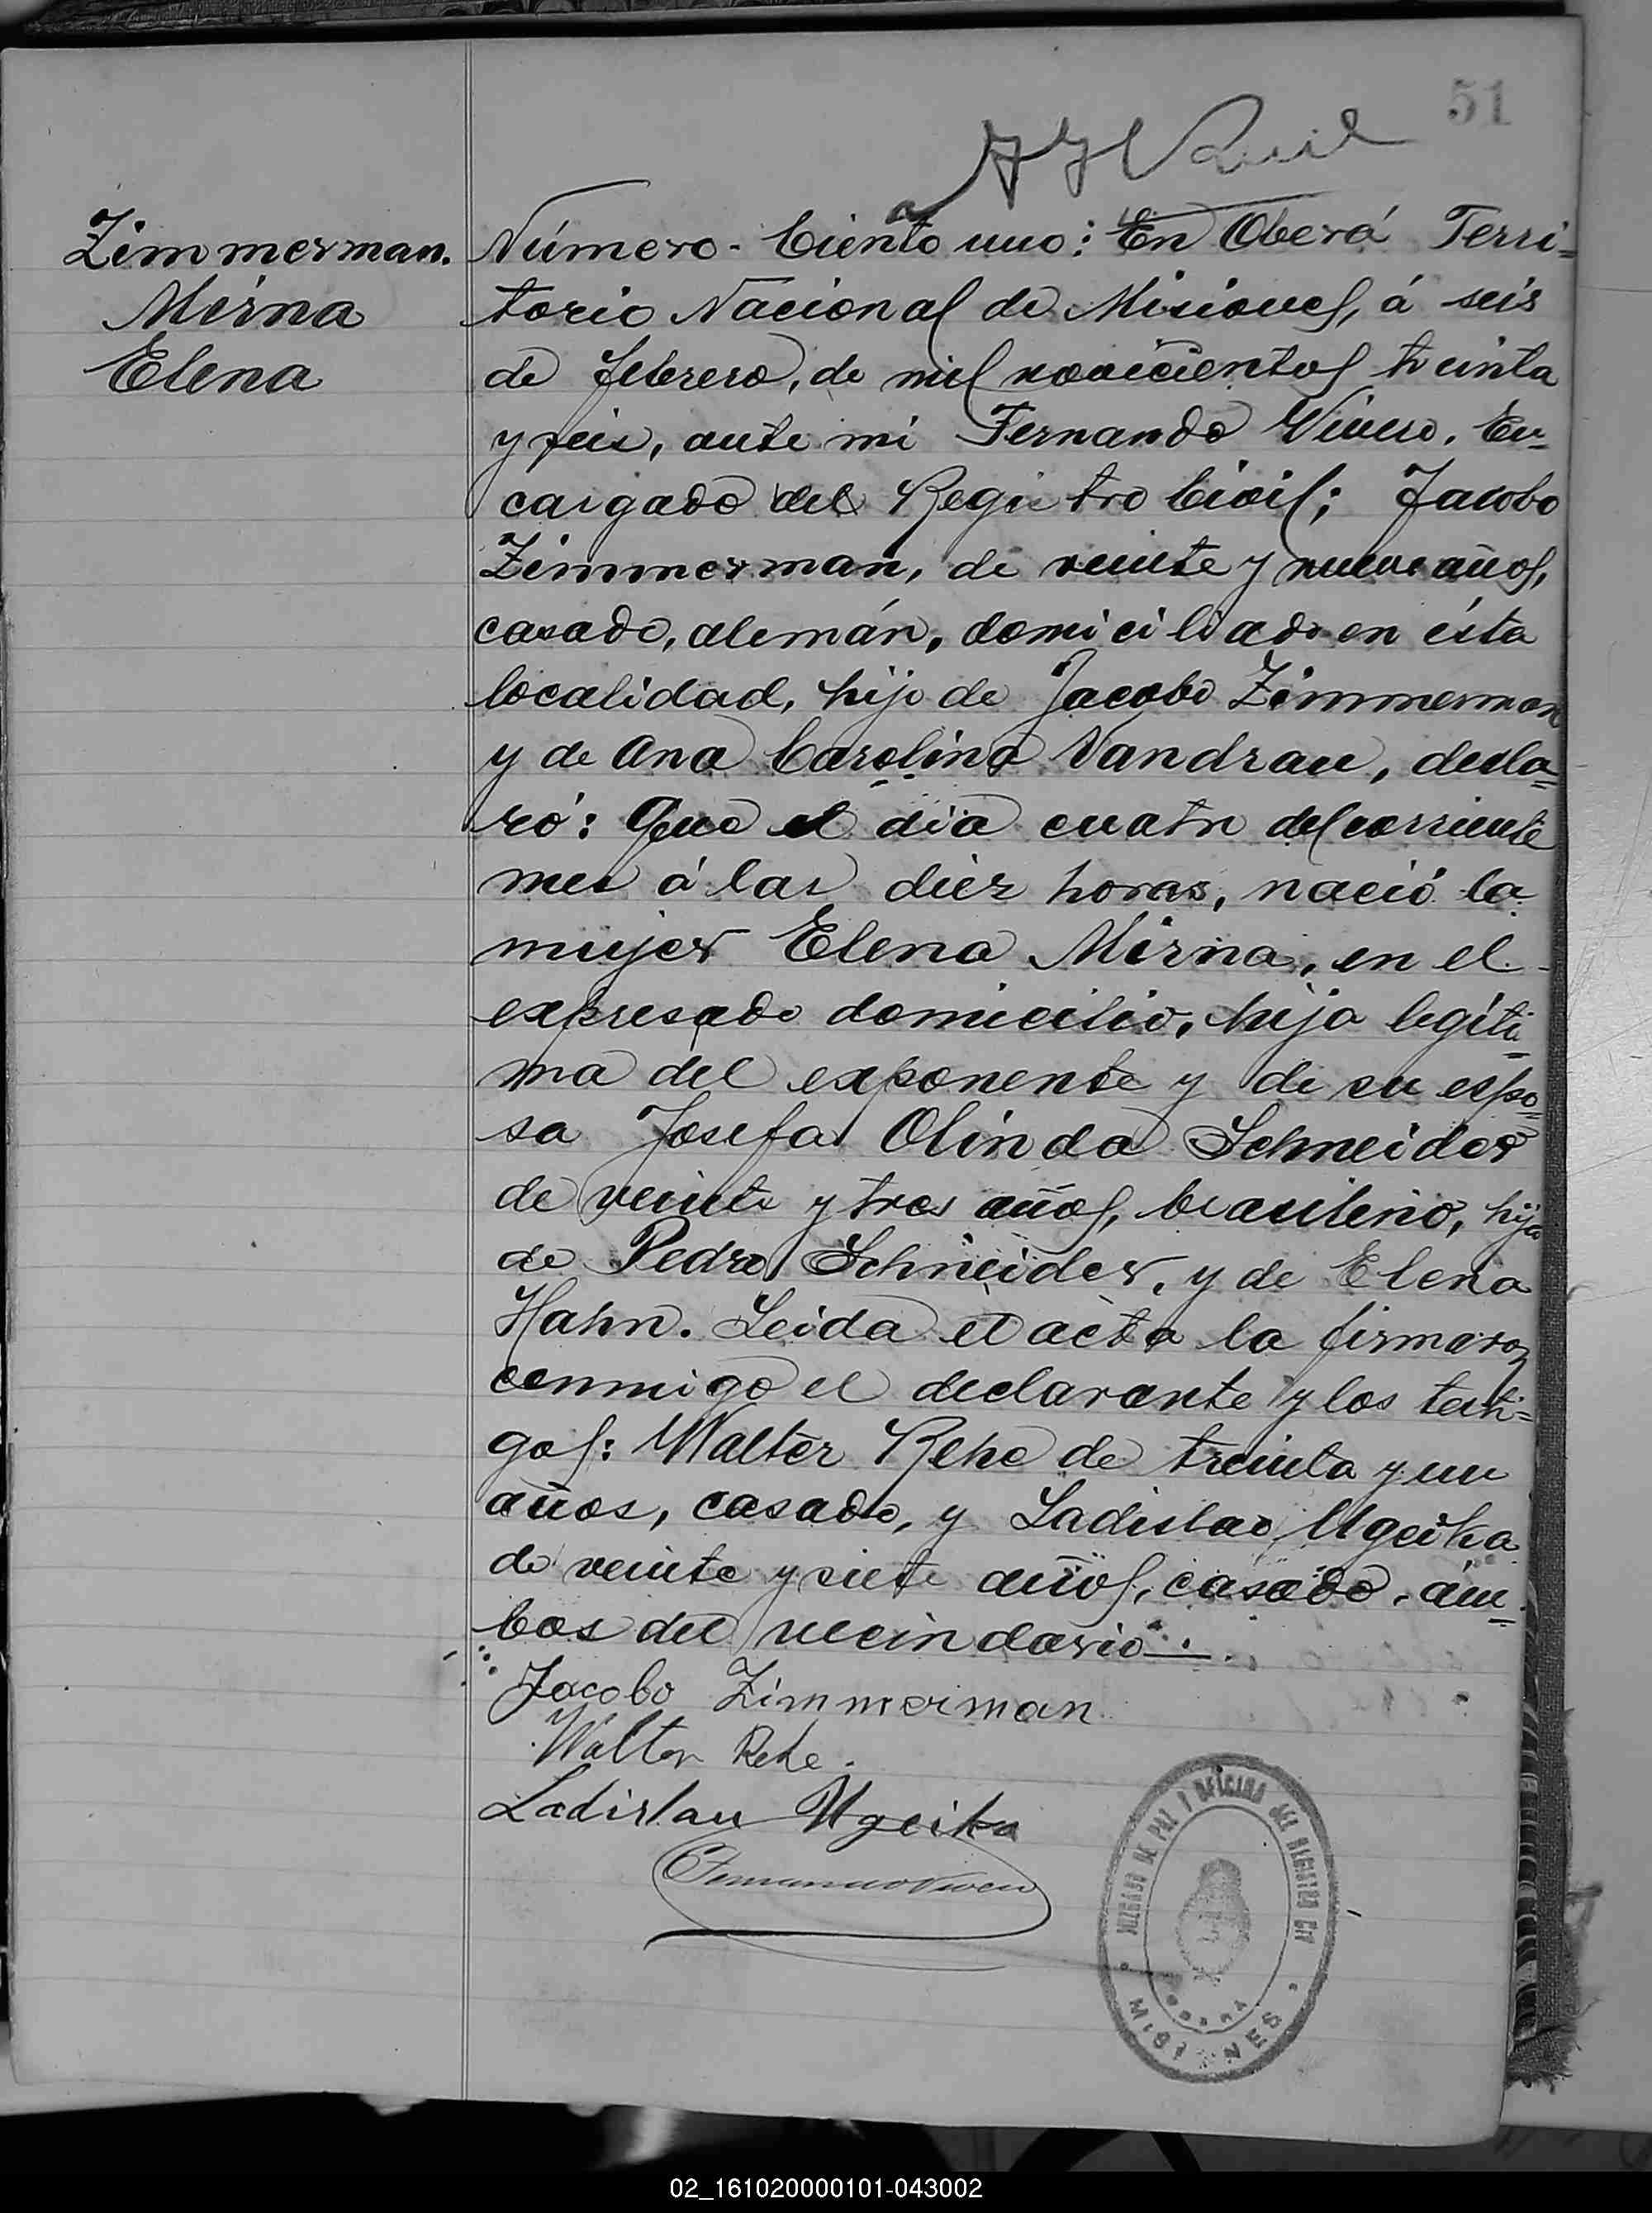 51
Zimmerman.
Mirna
Elena
Número - Ciento uno: En Oberá Terri-
torio Nacional de Misiones, á seis
de febrero, de mil novecientos treinta
y seis, ante mi Fernando Vivero, En-
cargado del Registro Civil; Jacobo
Zimmerman, de veinte y nueve años,
casado, alemán, domiciliado en ésta
localidad, hijo de Jacobo Zimmerman
y de Ana Carolina Vandrau, decla-
ró: Que el día cuatro del corriente
mes á las diez horas, nació la
mujer Elena Mirna, en el
expresado domicilio, hija legíti-
ma del exponente y de su espo-
sa Josefa Olinda Schneider
de veinte y tres años, brasileño, hija
de Pedro Schneider, y de Elena
Hahn. Leida el acta la firmaron
conmigo el declarante y los testi-
gos: Walter Rehe de treinta y un
años, casado, y Ladislao Ugeika
de veinte y siete años, casado, ám-
bos del vecindario.
Jacobo Zimmerman
Walter Rehe.
Ladislau Ugeika
Fernando Vivero
JUZGADO DE PAZ Y OFICINA DEL REGISTRO CIV
OBERA
MISIONES
02_161020000101-043002